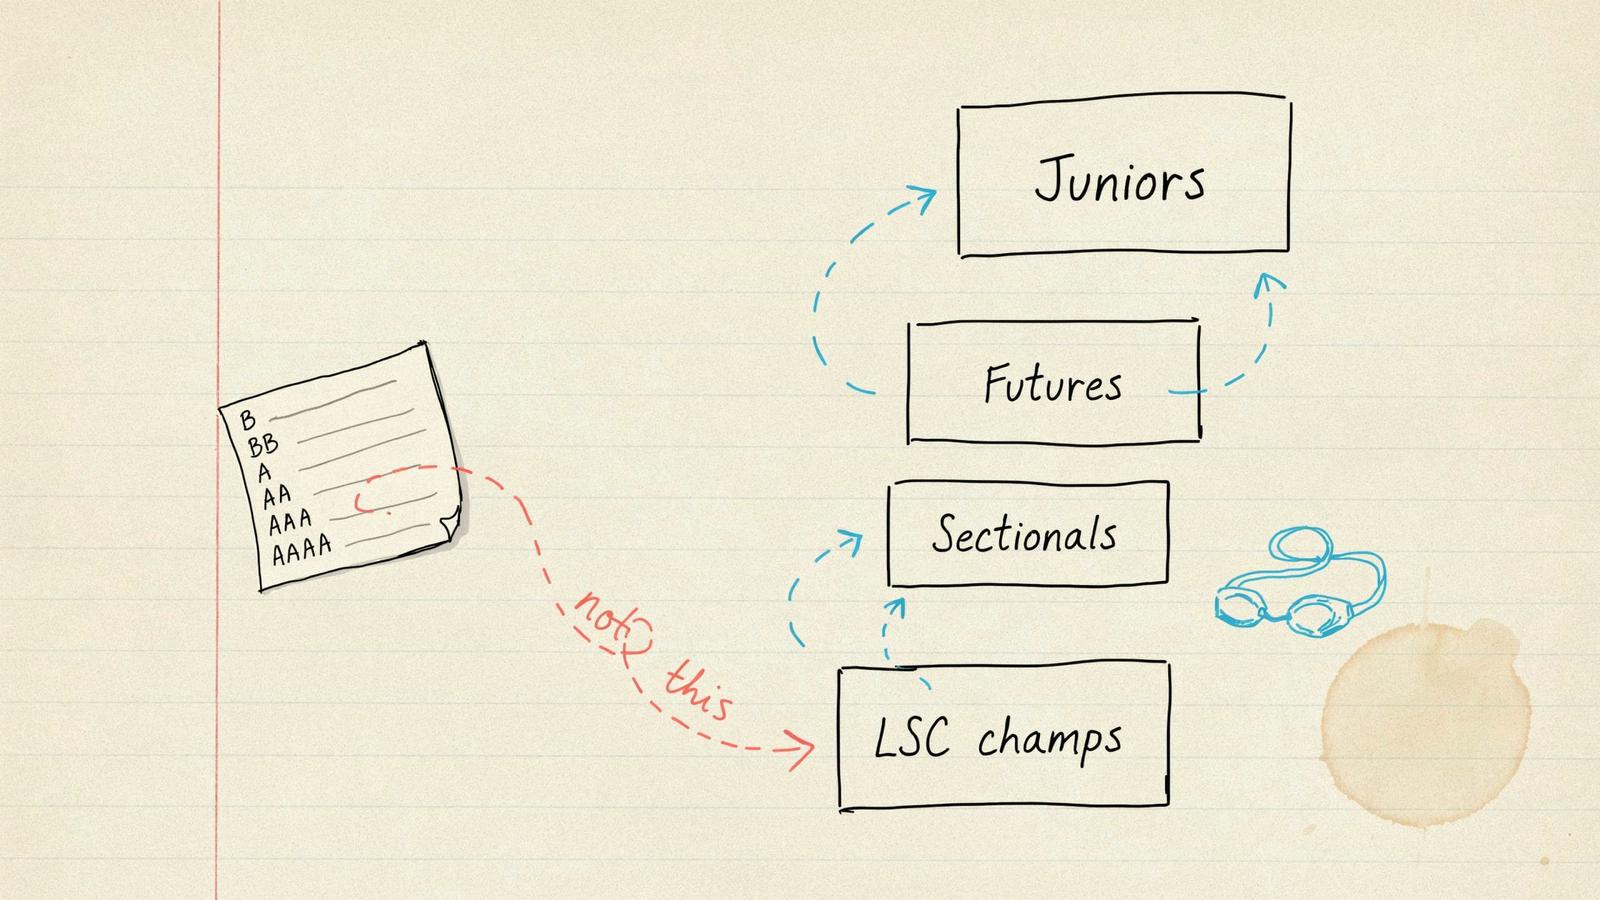 Juniors
Futures
B
BB
A
AA
AAA
AAAA
Sectionals
not
this
LSC champs